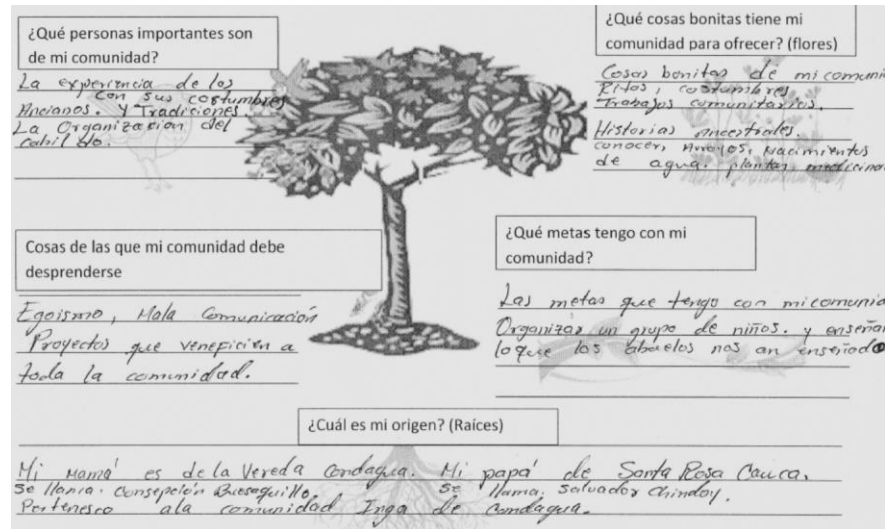 ¿Qué personas importantes son
de mi comunidad?
La experiencia de los
Ancianos. con sus costumbres
y Tradiciones.
La Organización del
cabildo.
¿Qué cosas bonitas tiene mi
comunidad para ofrecer? (flores)
Cosas bonitas de mi comuni
Ritos, costumbres
Trabajos comunitarios.
Historias ancestrales
conocer, Arroyos, Nacimientos
de agua. plantas medicinal
Cosas de las que mi comunidad debe
desprenderse
Egoismo, Mala Comunicación
Proyectos que veneficien a
toda la comunidad.
¿Qué metas tengo con mi
comunidad?
Las metas que tengo con mi comunid
Organizar un grupo de niños. y enseñar
lo que los abuelos nos an enseñado
¿Cuál es mi origen? (Raíces)
Mi Mamá es de la Vereda Condagua. Mi papá de Santa Rosa Cauca.
Se llama. Consepción Buesaquillo. Se llama. Salvador Chindoy.
Pertenesco ala comunidad Inga de Condagua.